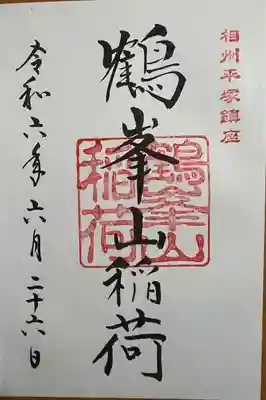 相州平塚鎮座
鶴峯山稲荷
鶴峯山
稲荷
令和六年六月二十六日